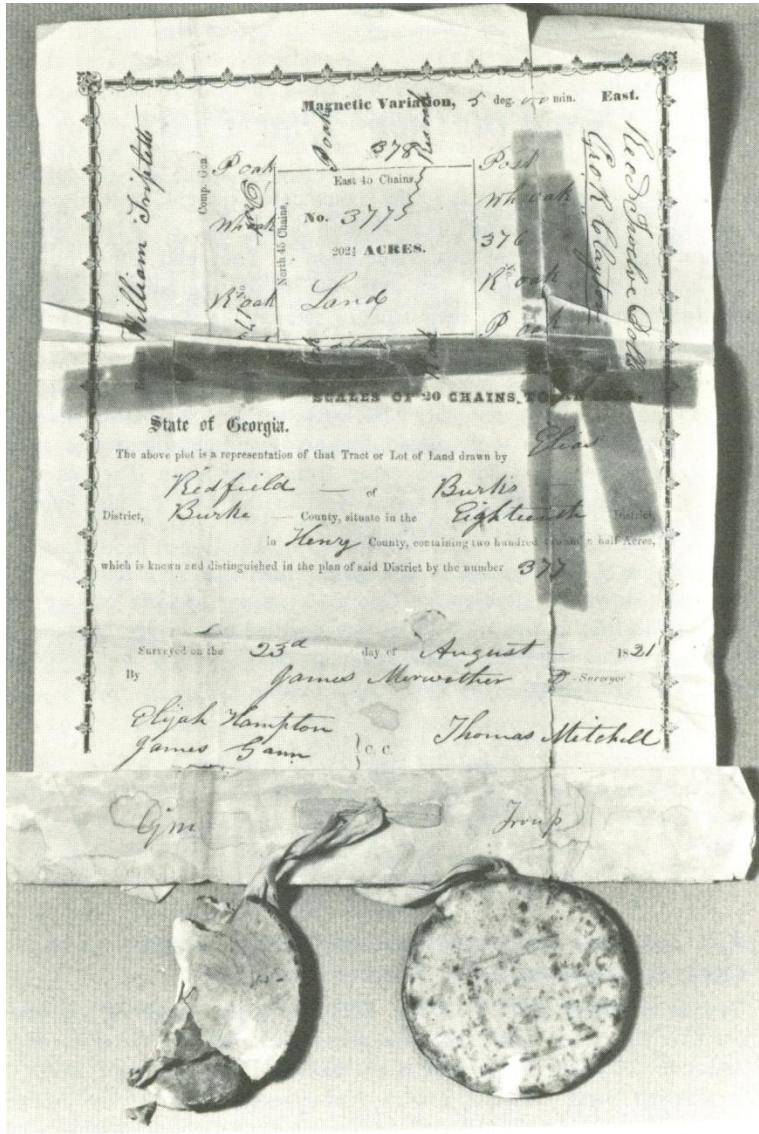 Magnetic Variation, 5 deg. 00 min. East.
Recd Twelve Dolls
Geo. R. Clayton
William Triplett
378
P oak
Red oak
Comp. Gen
P oak
Wh oak
R oak
No
East 45 Chains,
North 45 Chains,
No. 377
202½ ACRES.
Land
Post
Wh oak
376
No
R oak
P oak
SCALES OF 20 CHAINS, TO AN INCH.
State of Georgia.
The above plot is a representation of that Tract or Lot of Land drawn by Elias
Redfield — of Burks —
District, Burke — County, situate in the Eighteenth District,
in Henry County, containing two hundred two and a half Acres,
which is known and distinguished in the plan of said District by the number 377
Surveyed on the 23d day of August — 1821
By James Merwether D. Surveyor
Elijah Hampton
James Gann } C. C.
Thomas Mitchell
GM Troup